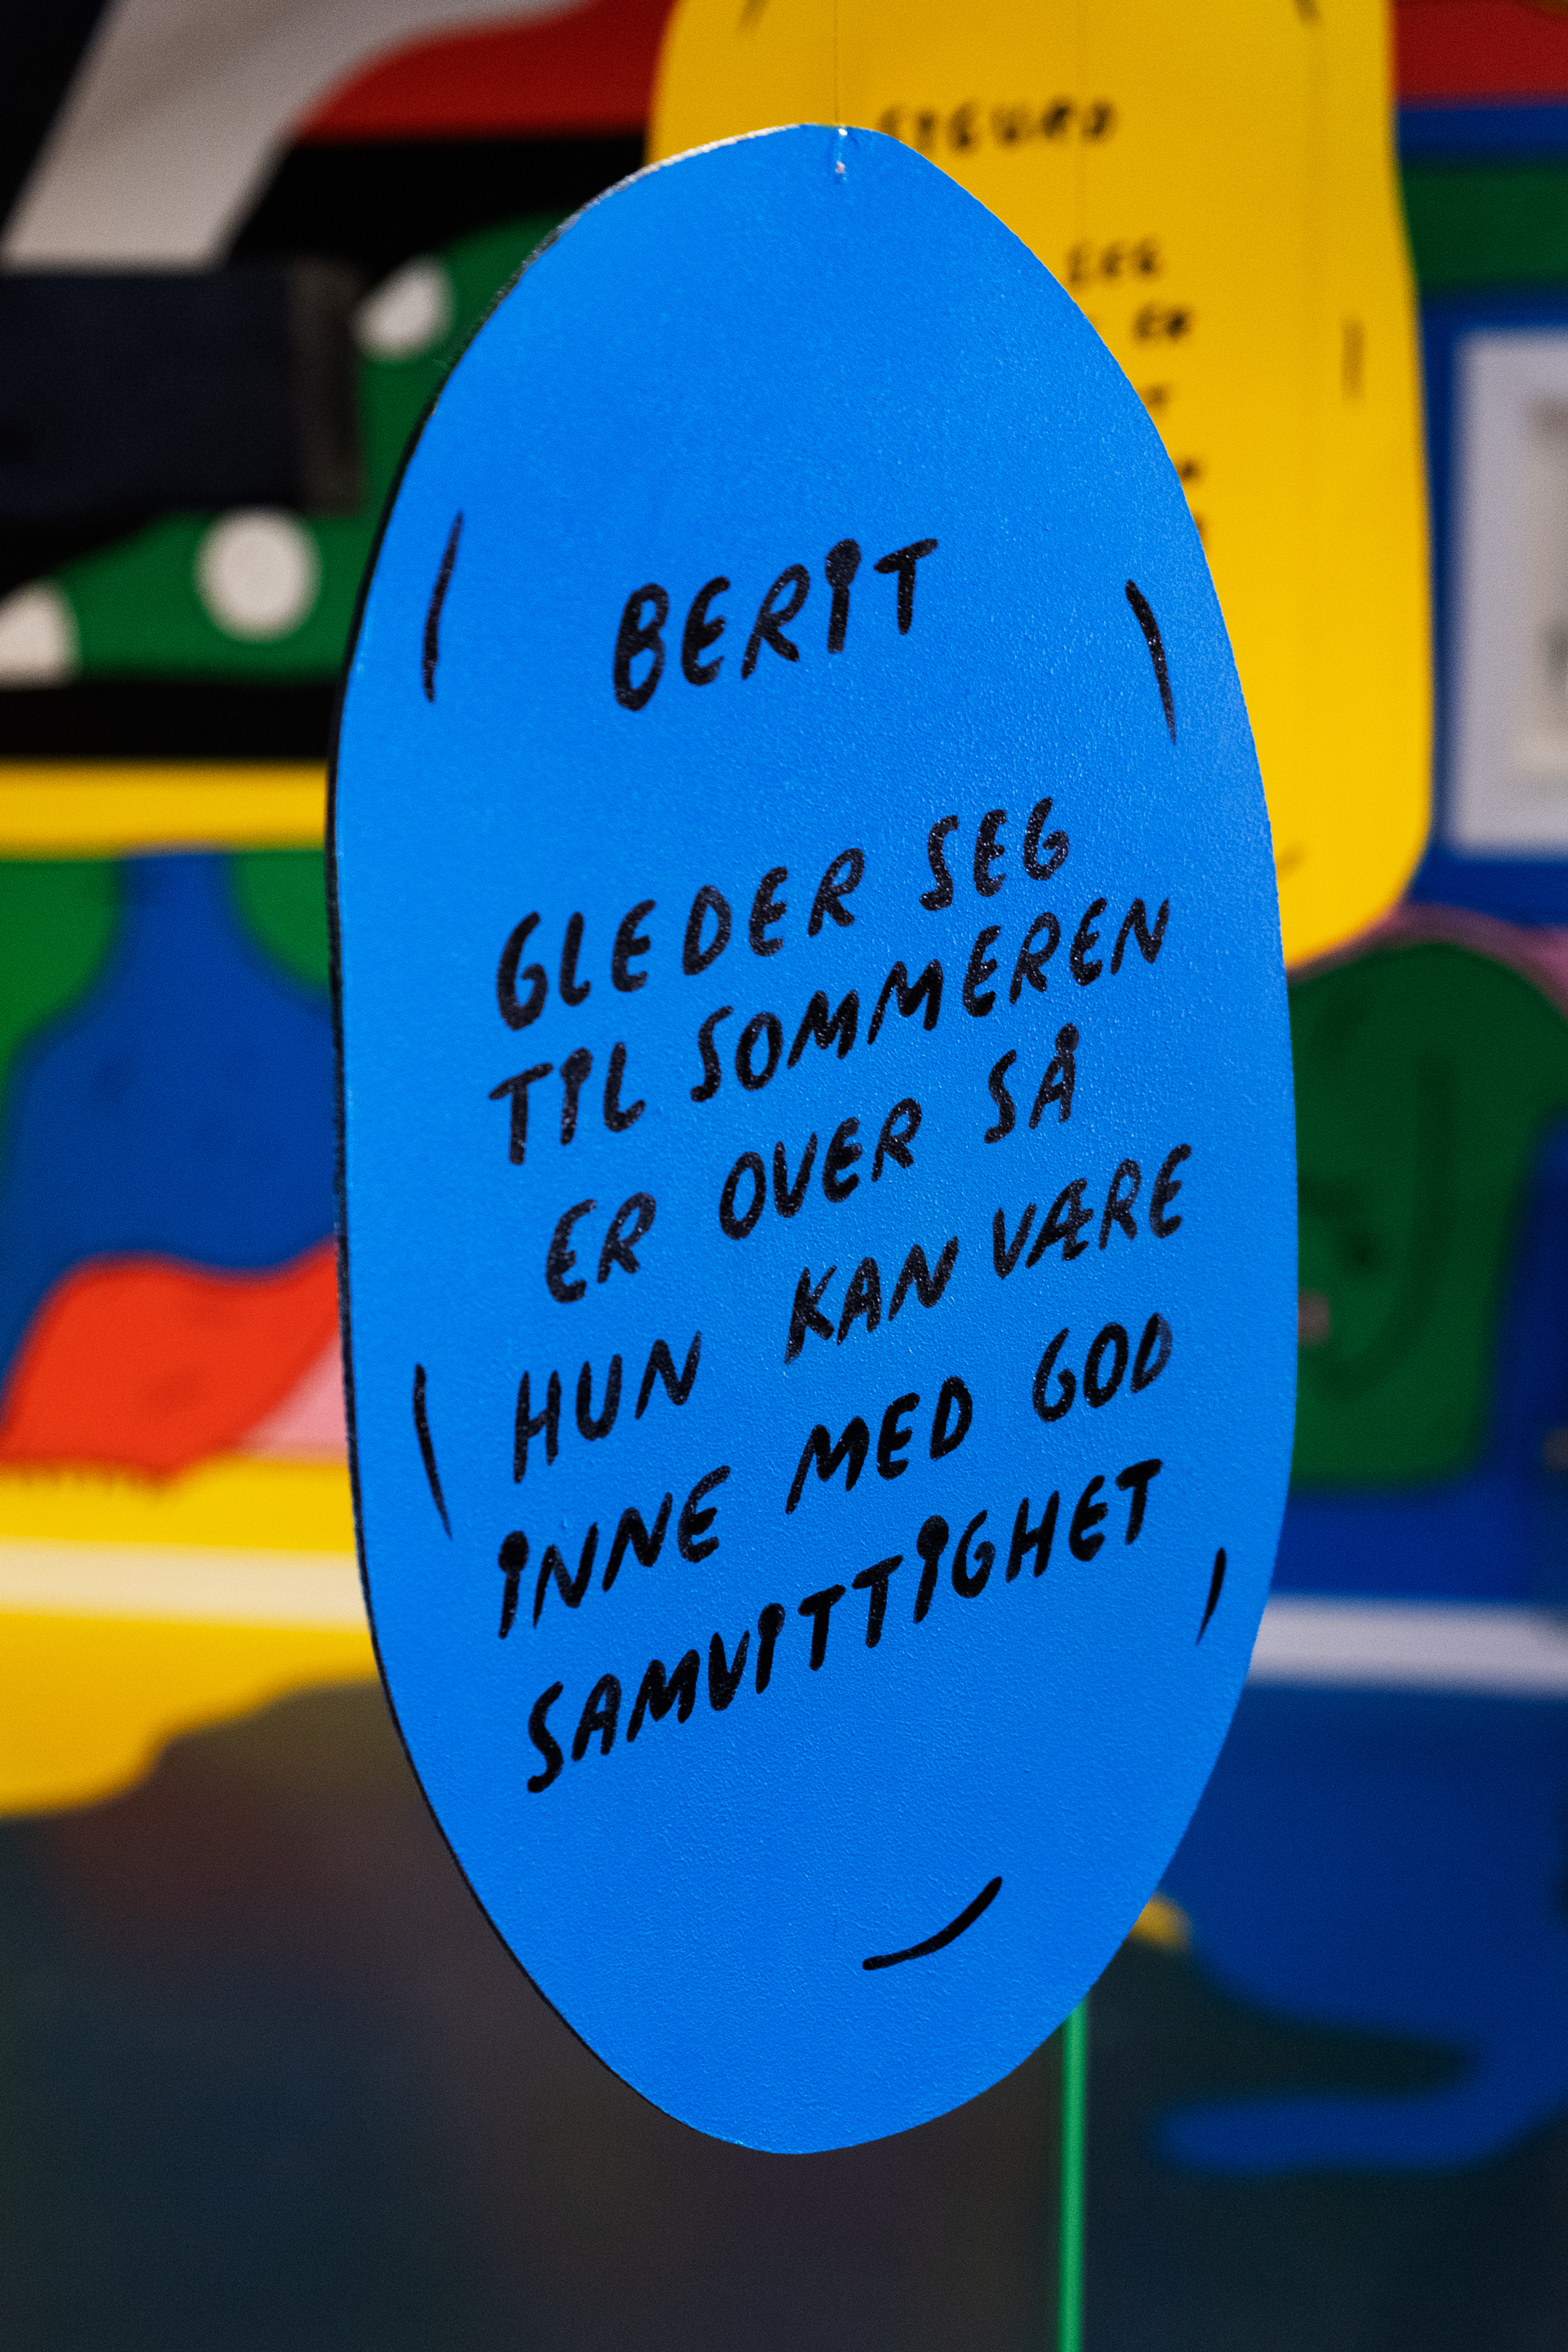 SIGURD
SEG
ER
BERIT
GLEDER SEG
TIL SOMMEREN
ER OVER SÅ
HUN KAN VÆRE
INNE MED GOD
SAMVITTIGHET